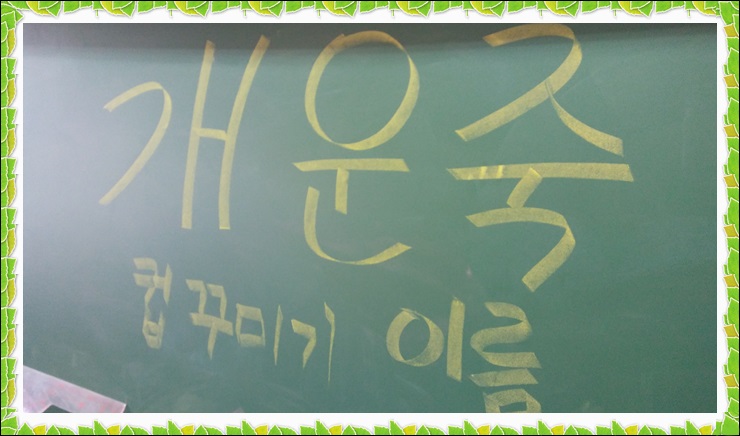 개운죽
컵 꾸미기 이름